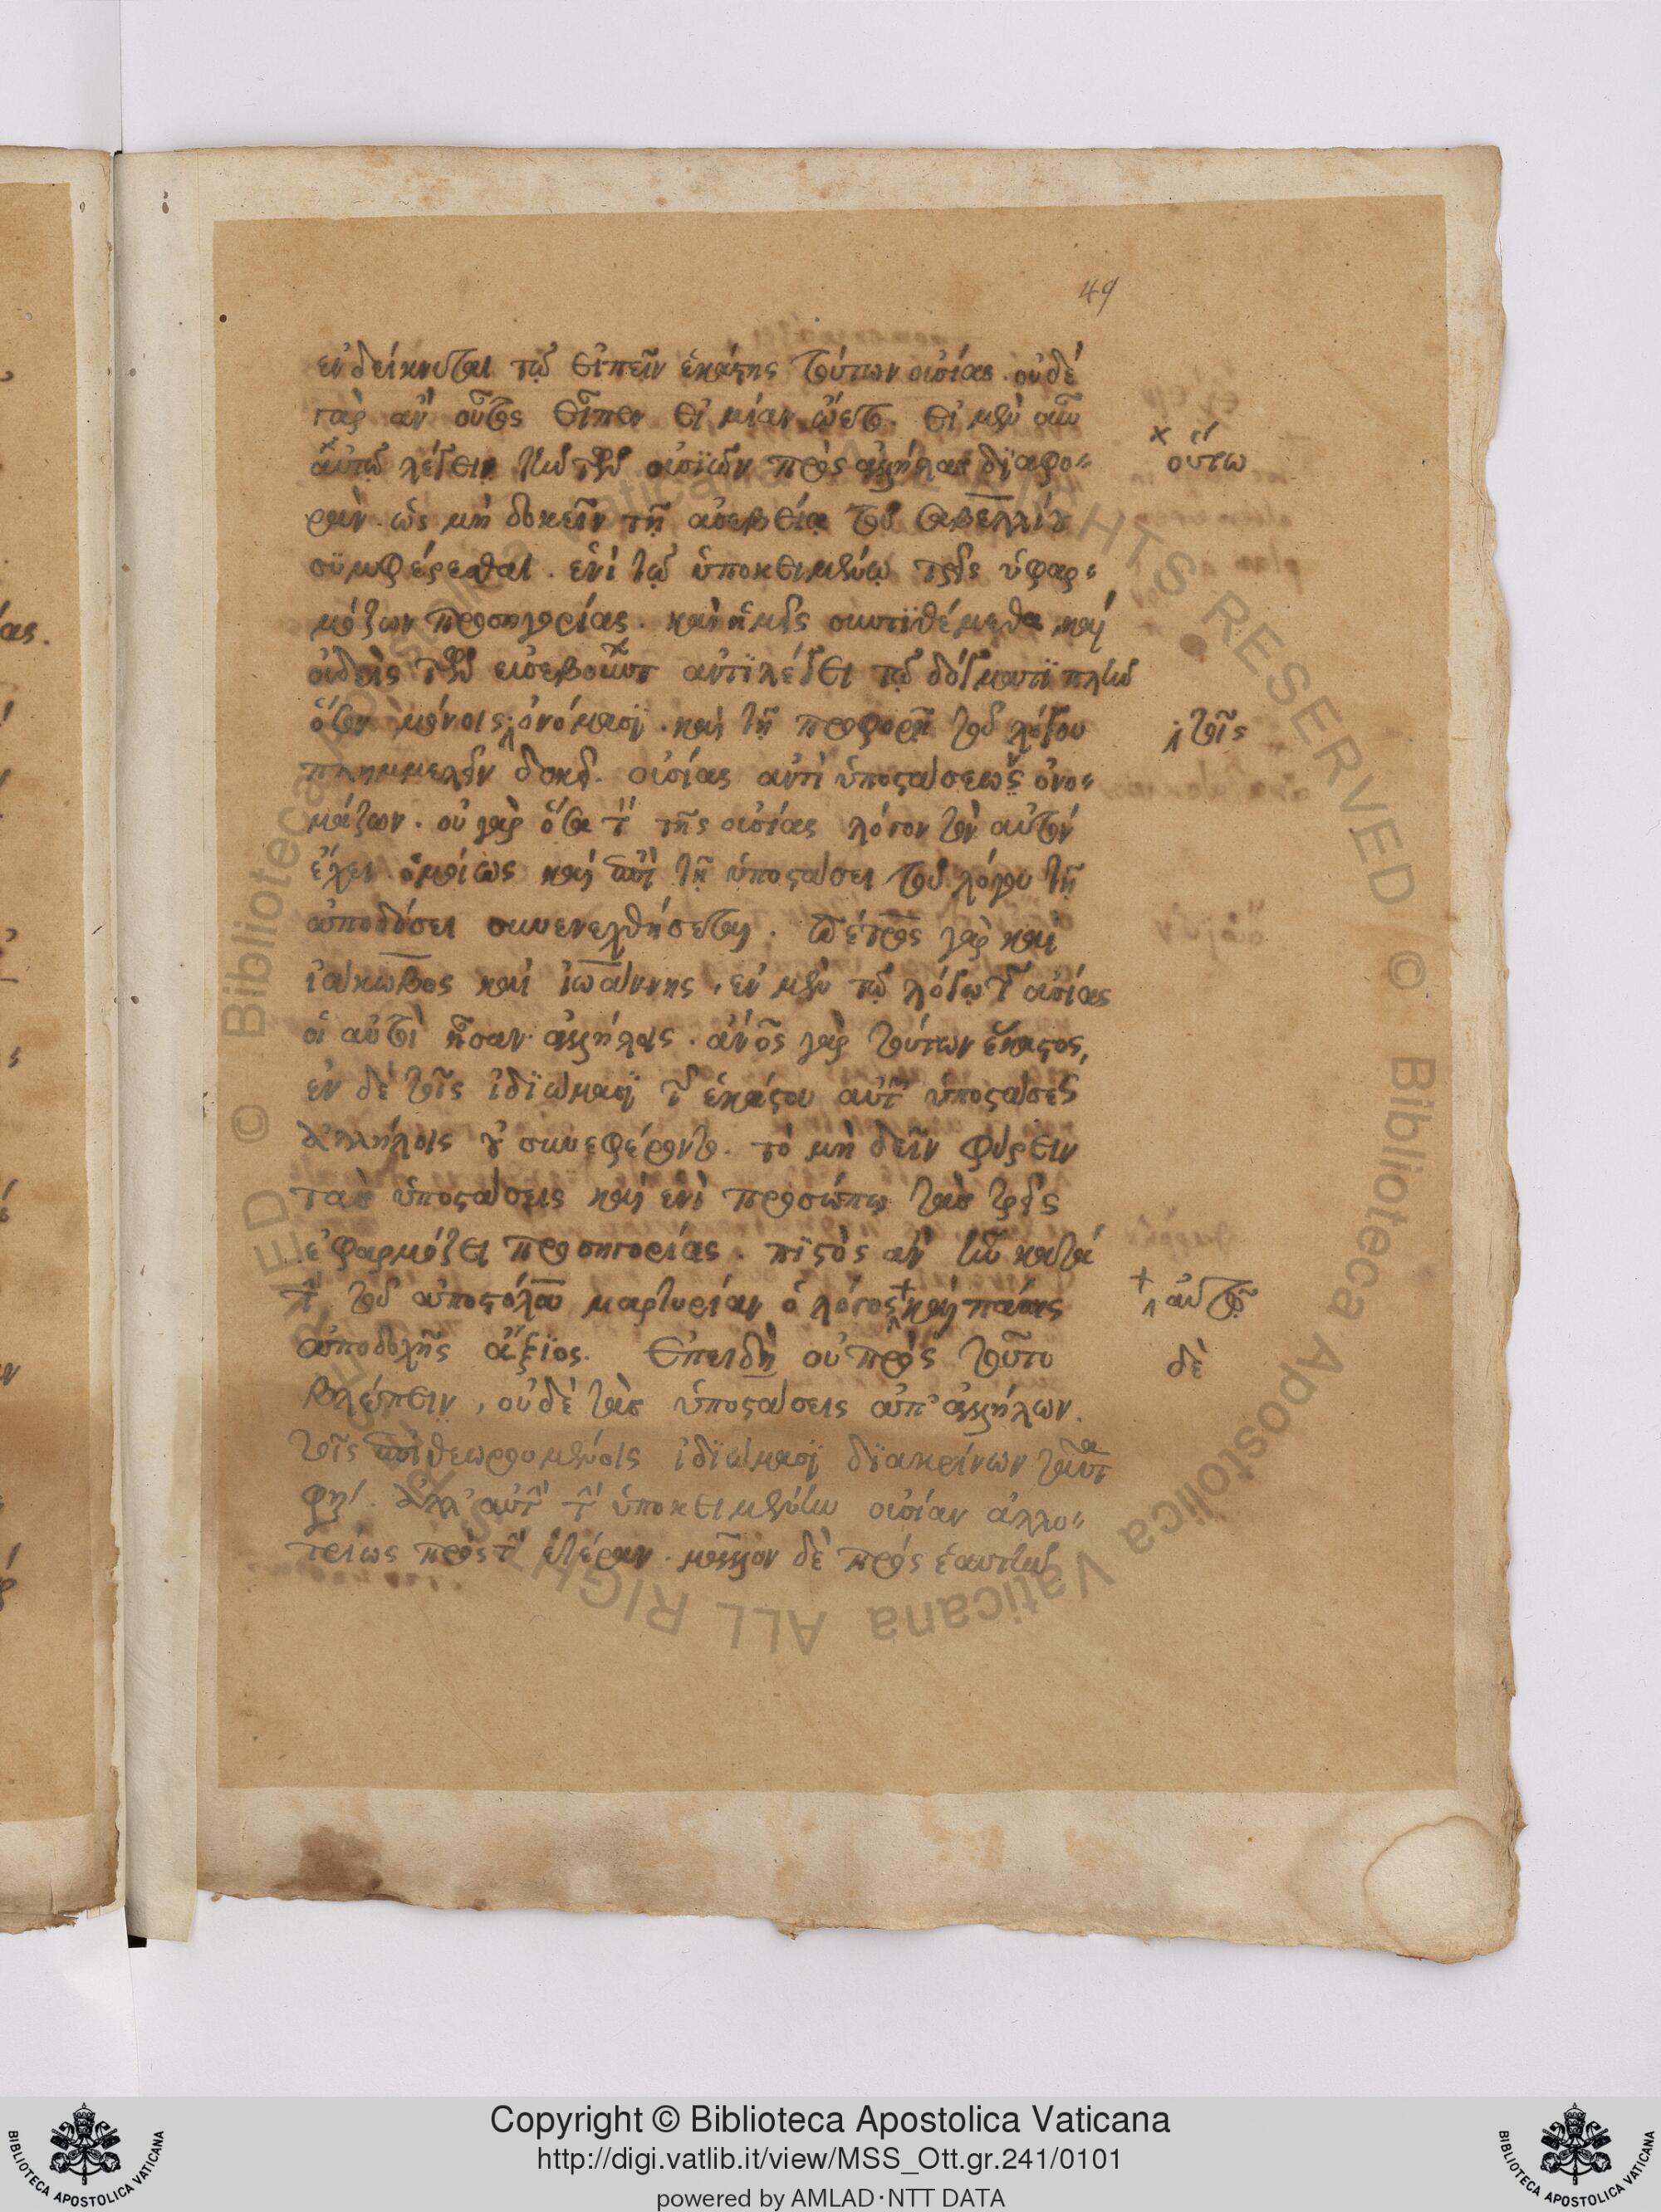 49
ἐνδείκνυται τῷ εἰπεῖν ἑκάστης τούτων οὐσίας. οὐδὲ
γὰρ ἂν οὕτως εἶπεν εἰ μίαν ᾤετο. εἰ μὲν οὖν
αὐτῷ λέγει τὴν τῶν οὐσιῶν πρὸς ἀλλήλας διαφο-
ρὰν. ὡς μὴ δοκεῖν τῇ ἀσεβείᾳ τοῦ σαβελλίου
συμφέρεσθαι. ἑνὶ τῷ ὑποκειμένῳ τρεῖς ἐφαρ-
μόζων προσηγορίας. καὶ ἡμεῖς συντιθέμεθα καὶ
οὐδεὶς τῶν εὐσεβούντ ἀντιλέγει τῷ δόγματι πλὴν
ὅσον μόνοις ὀνόμασι. καὶ τῇ προφορᾷ τοῦ λόγου
πλημμελεῖν δοκεῖ. οὐσίας ἀντὶ ὑποστάσεως ὀνο-
μάζων. οὐ γὰρ ὅσα τ τῆς οὐσίας λόγον τὸν αὐτὸν
ἔχει. ὁμοίως καὶ ἐπὶ τῇ ὑποστάσει τοῦ λόγου τῇ
ἀποδόσει συνενεχθήσεται. πέτρος γὰρ καὶ
ἰάκωβος καὶ ἰωάννης, ἐν μὲν τῷ λόγῳ τ οὐσίας
οἱ αὐτοὶ ἦσαν ἀλλήλοις. ἄνος γὰρ τούτων ἕκαστος,
ἐν δὲ τοῖς ἰδιώμασι τ ἑκάστου αὐτ ὑποστάσεως
ἀλλήλοις οὐ συνεφέροντο. τὸ μὴ δεῖν φύρειν
τὰς ὑποστάσεις καὶ ἑνὶ προσώπῳ τὰς τρεῖς
ἐφαρμόζει προσηγορίας. πιστὸς ἂν ἦν κατὰ
τ τοῦ ἀποστόλου μαρτυρίαν ὁ λόγος καὶ πάσης
ἀποδοχῆς ἄξιος. Ἐπειδὴ οὐ πρὸς τοῦτο
βλέπειν, οὐδὲ τὰς ὑποστάσεις ἀπ' ἀλλήλων.
τοῖς ἐπιθεωρουμένοις ἰδιώμασι διακρίνων ταῦτα
φησί. ἀλλ' αὐτὴν τὴν ὑποκειμένην οὐσίαν ἀλλο-
τρίως πρὸς τὴν ἑτέραν. μᾶλλον δὲ πρὸς ἑαυτὴν
οὕτω
τοῖς
αὐτῷ
δὲ
Copyright © Biblioteca Apostolica Vaticana
http://digi.vatlib.it/view/MSS_Ott.gr.241/0101
powered by AMLAD·NTT DATA
BIBLIOTECA APOSTOLICA VATICANA
BIBLIOTECA APOSTOLICA VATICANA